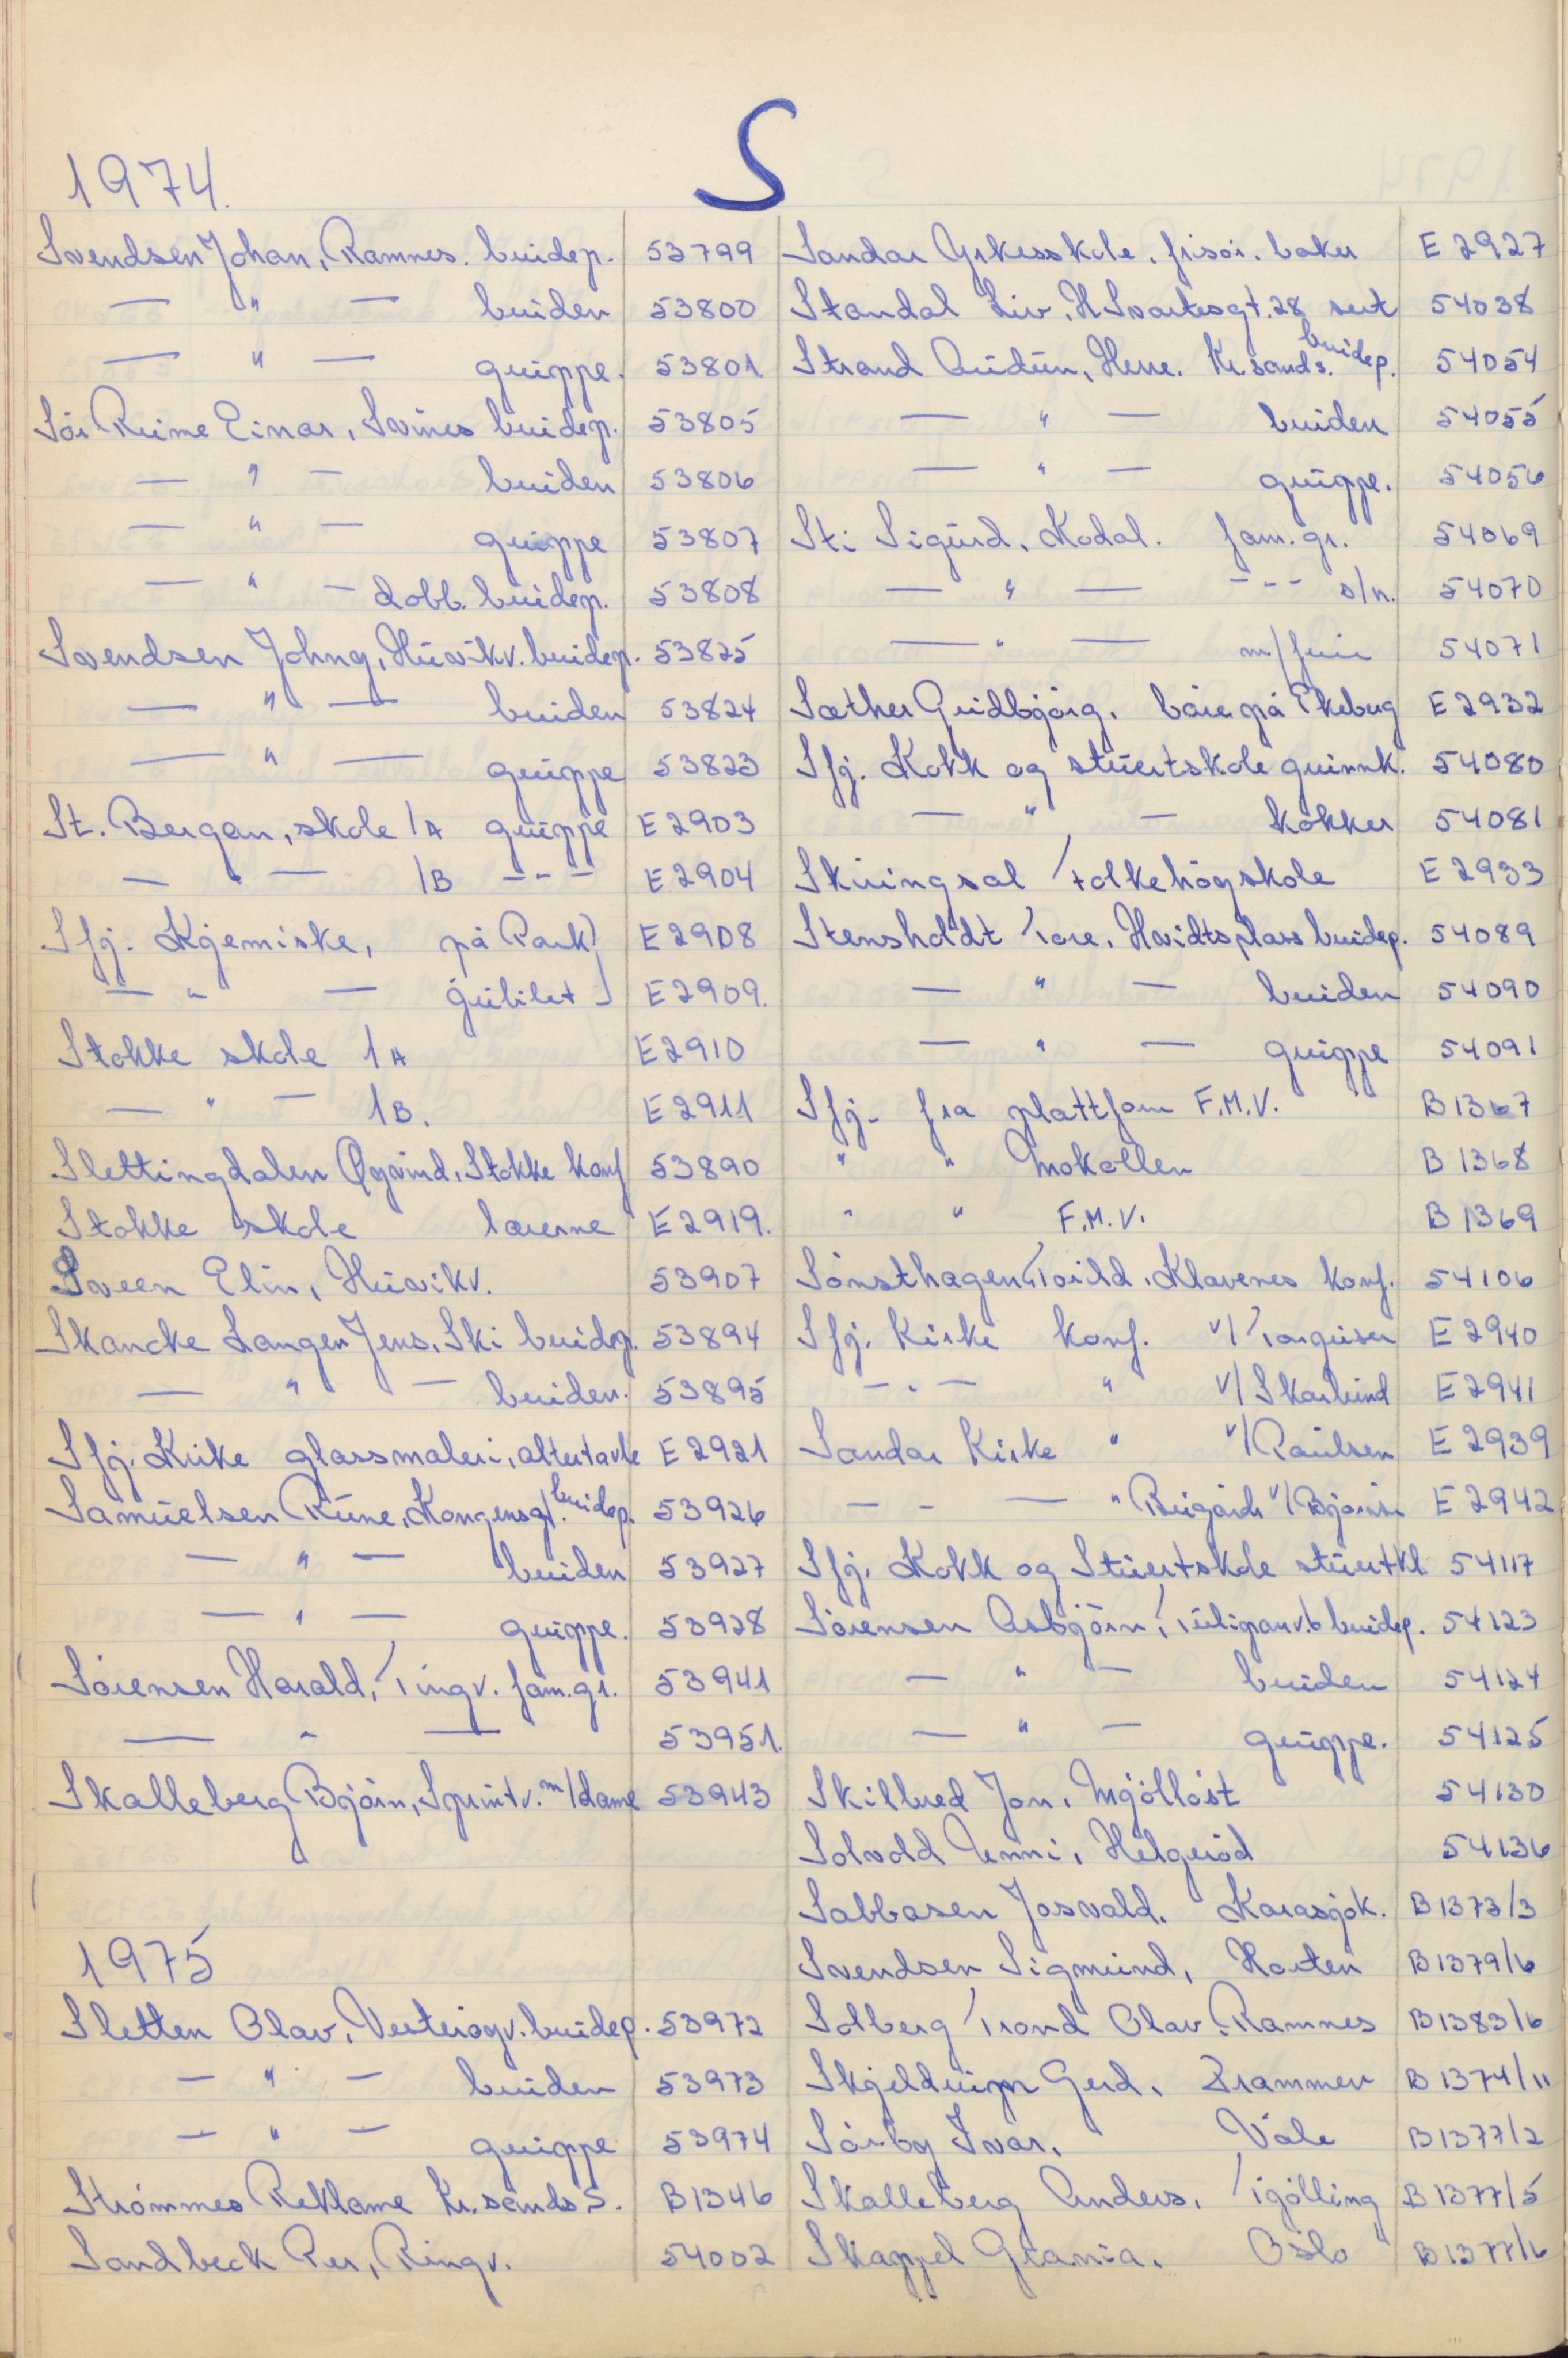 S
1974.
Svendsen Johan, Ramnes. brudep. 53799
— " — bruden 53800
— " — gruppe. 53801
Sör Reime Einar, brudep. 53805
— " — bruden 53806
— " — gruppe 53807
— " — dobb. brudep. 53808
Svendsen Johny, Husvikv. brudep. 53825
— " — bruden 53824
— " — gruppe 53823
St. Bergan, skole 1A gruppe E2903
— " — 1B --- E2904
Sfj. Kjemiske, på Park E2908
— " — jubilet E2909.
Stokke skole 1A E2910
— " — 1B. E2911
Slettingdalen Øyvind, Stokke konf 53890
Stokke skole lærerne E2919.
Sveen Elin, Husvikv. 53907
Skancke Langer Jens, Ski brudep. 53894
— " — bruden. 53895
Sfj. Kirke glassmaleri, altertavle E2921
Samuelsen Rune, Kongensgt. brudep. 53926
— " — bruden 53927
— " — gruppe. 53928
Sörensen Harald, Tingv. fam.gr. 53941
— " — 53951.
Skalleberg Björn, Sprintv. m/dame 53943
1975
Sletten Olav, Vesteröyv. brudep. 53972
— " — bruden 53973
— " — gruppe 53974
Strömmes Reklame Kr.sands S. B1346
Sandbeck Per, Ringv. 54002
Sandar Yrkesskole. frisör. baker E2927
Standal Liv, H Svartesgt. 28 sert 54038
Strand Audun, Herre. Kr.sands. brudep. 54054
— " — bruden 54055
— " — gruppe. 54056
Sti Sigurd, Kodal. fam.gr. 54069
— " — --- s/n. 54070
— " — m/frue 54071
Sæther Gudbjörg. båre på Ekeberg E2932
Sfj. Kokk og stuertskole grunnk. 54080
— " — kokker 54081
Skiringsal Folkehögskole E2933
Stensholdt Tore, Hvidtsplass brudep. 54089
— " — bruden 54090
— " — gruppe 54091
Sfj. fra plattform F.M.V. B1367
" " Mokollen B1368
" " F.M.V. B1369
Sönsthagen Torild. Klavenes konf. 54106
Sfj. Kirke konf. v/Torgersen E2940
— " — " v/Skarlund E2941
Sandar Kirke " v/Paulsen E2939
— - — " Bugårds v/ E2942
Sfj. Kokk og Stuertskole stuertkl 54117
Sörensen Asbjörn, Tulipanv. 6 brudep. 54123
— " — bruden 54124
— " — gruppe. 54125
Skilbred Jon, Mjölløst 54130
Solvold Unni, Helgeröd 54136
Sabbasen Josvald. Karasjok. B1373/3
Svendsen Sigmund, Horten B1379/6
Solberg Trond Olav. Ramnes B1383/6
Gerd. Drammen B1374/11
Sörby Ivar. Våle B1377/2
Skalleberg Anders. Tjölling B1377/5
Skappel Grania. Oslo B1377/6